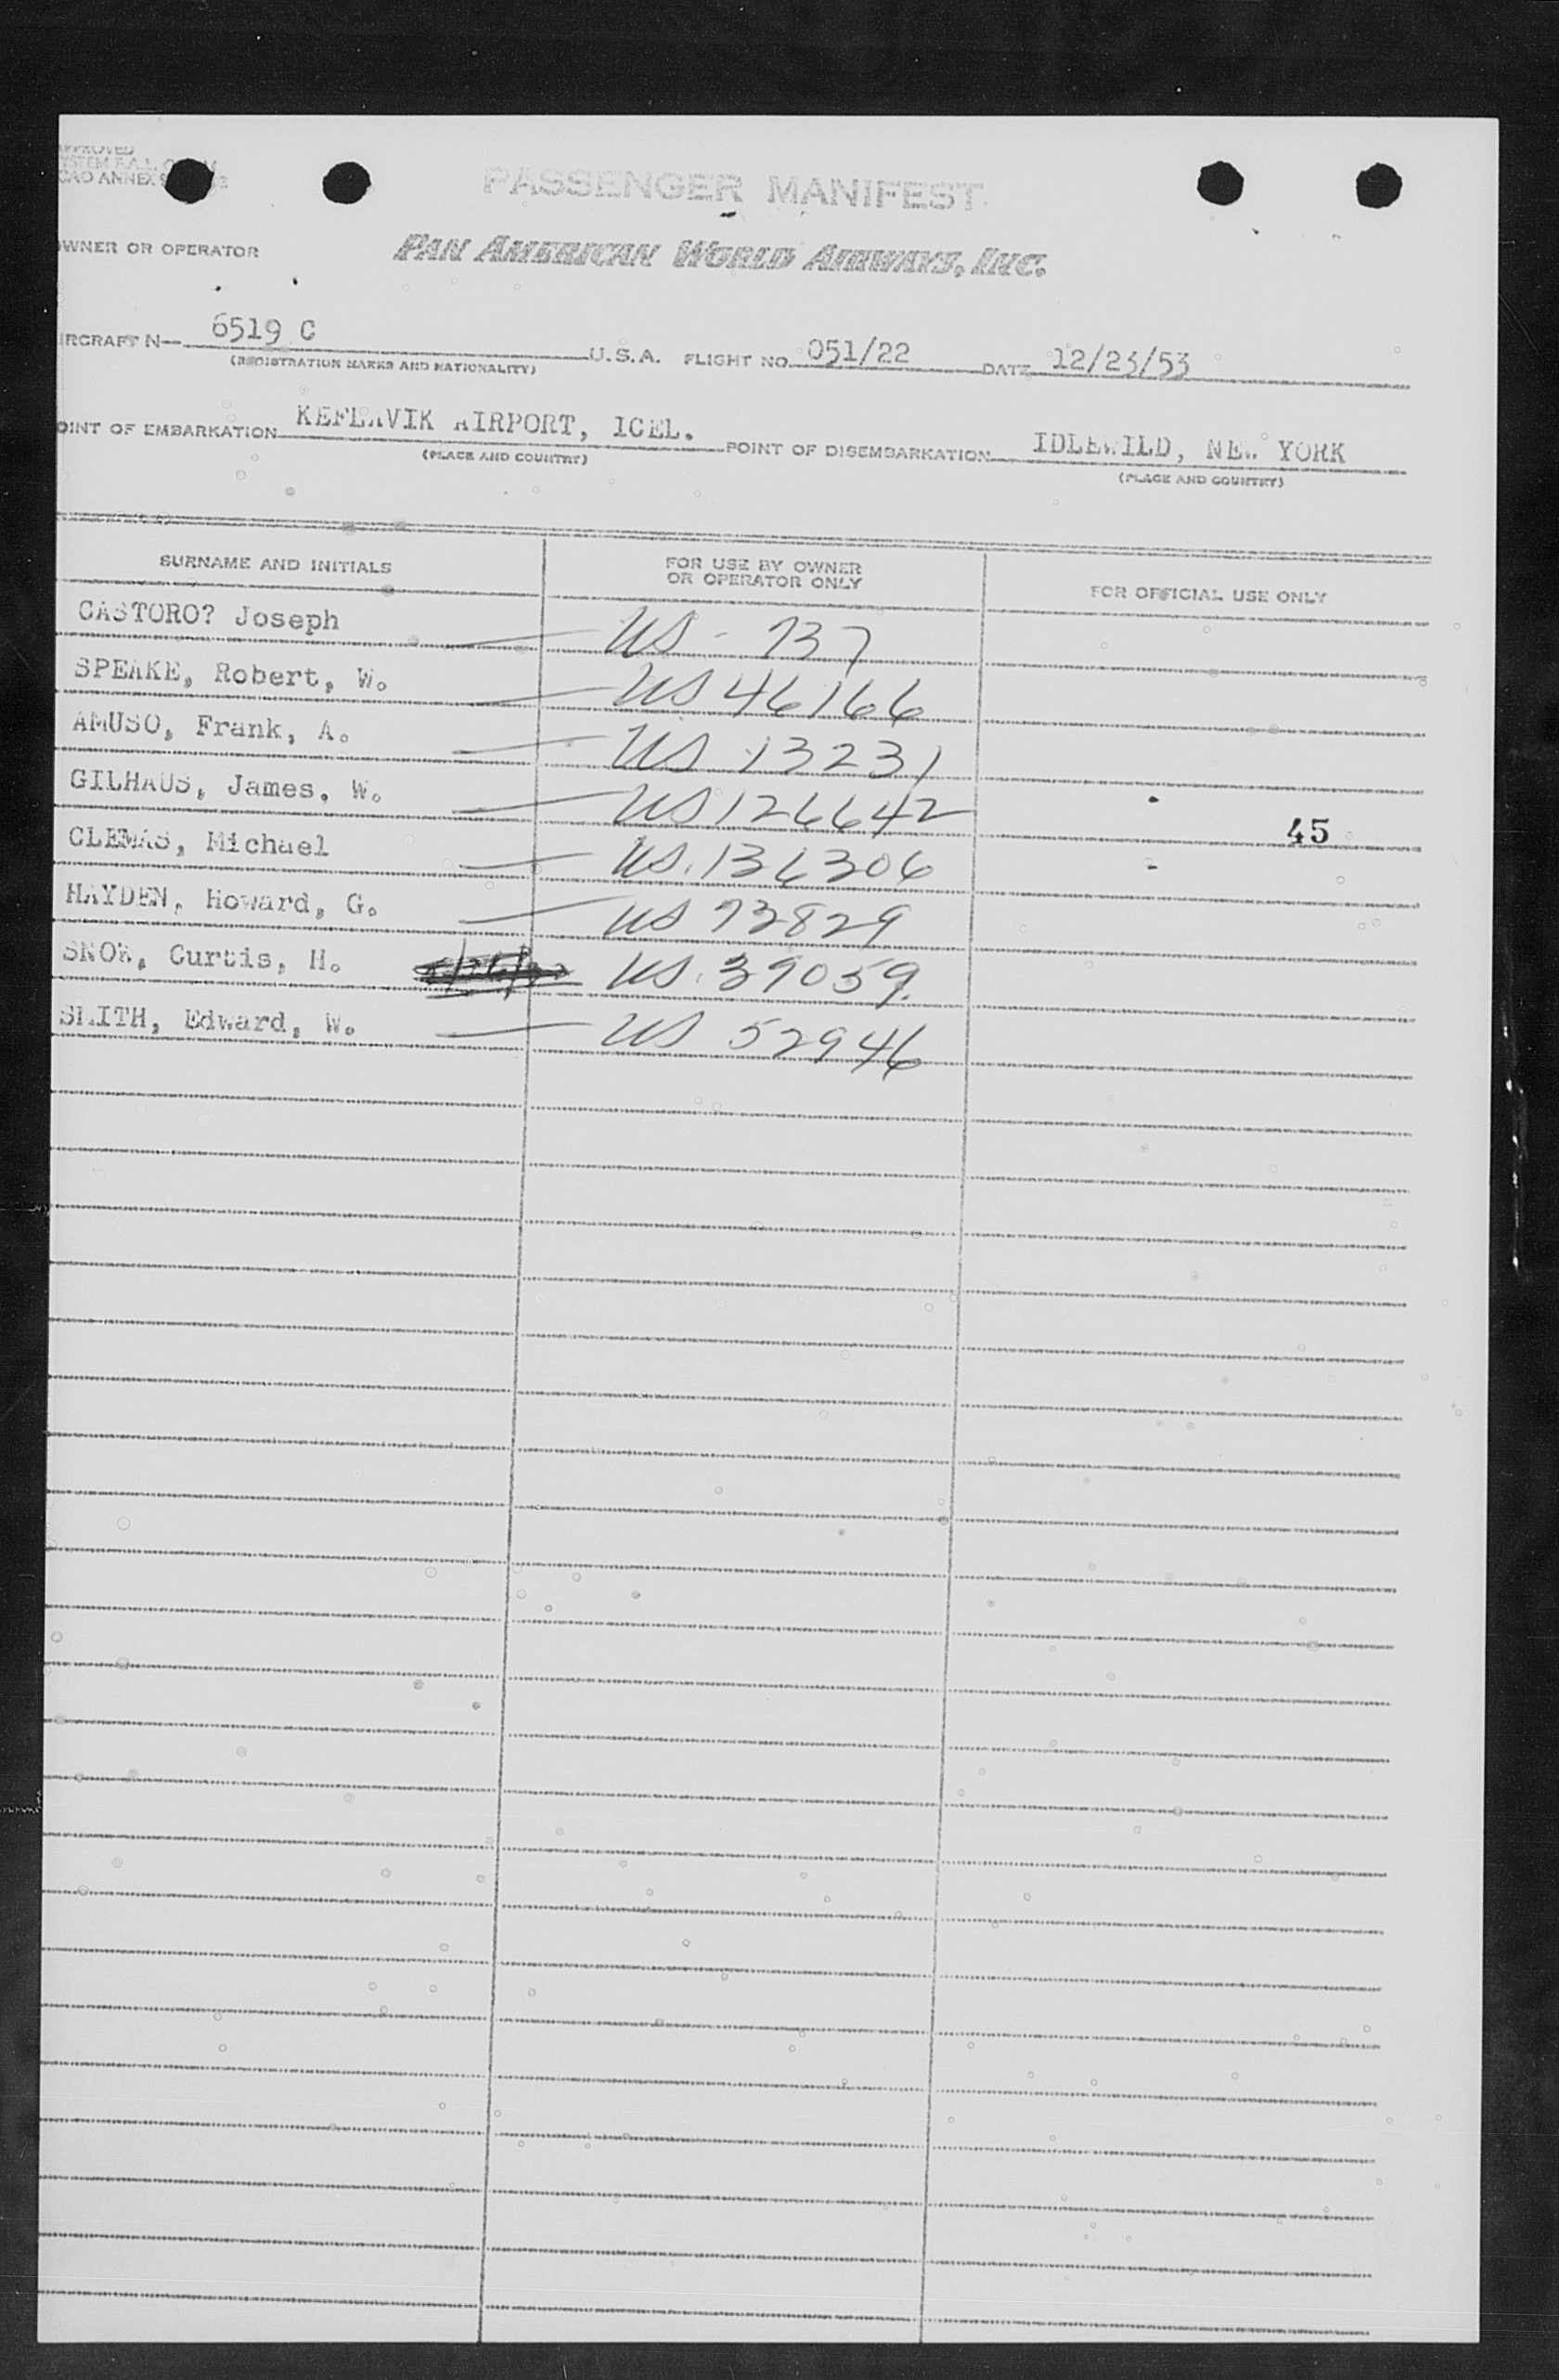 APPROVED
SYSTEM F.A.L.
ICAO ANNEX 9
PASSENGER MANIFEST
OWNER OR OPERATOR PAN AMERICAN WORLD AIRWAYS, INC.
AIRCRAFT N— 6519 C U.S.A. FLIGHT NO. 051/22 DATE 12/23/53
(REGISTRATION MARKS AND NATIONALITY)
POINT OF EMBARKATION KEFLAVIK AIRPORT, ICEL. POINT OF DISEMBARKATION IDLEWILD, NEW YORK
(PLACE AND COUNTRY) (PLACE AND COUNTRY)
SURNAME AND INITIALS FOR USE BY OWNER OR OPERATOR ONLY FOR OFFICIAL USE ONLY
CASTORO? Joseph US - 737
SPEAKE, Robert, W. US 46166
AMUSO, Frank, A. US 13231
GILHAUS, James, W. US 126642
45
CLEMAS, Michael US. 136306
HAYDEN, Howard, G. US 73829
SNOW, Curtis, H. US. 39059.
SMITH, Edward, W. US 52946